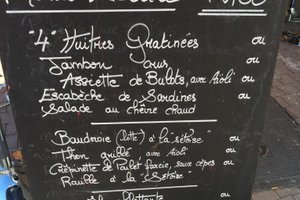 "4" Huîtres Gratinées ou
Jambon cru ou
Assiette de Bulots, avec Aïoli ou
Escabèche de Sardines ou
Salade au chèvre chaud
Baudroie (lotte) à la "sétoise" ou
Thon grillé avec Aïoli ou
Crépinette de Poulet farcie, sauce cèpes ou
Rouille à la "Sétoise"
flottante